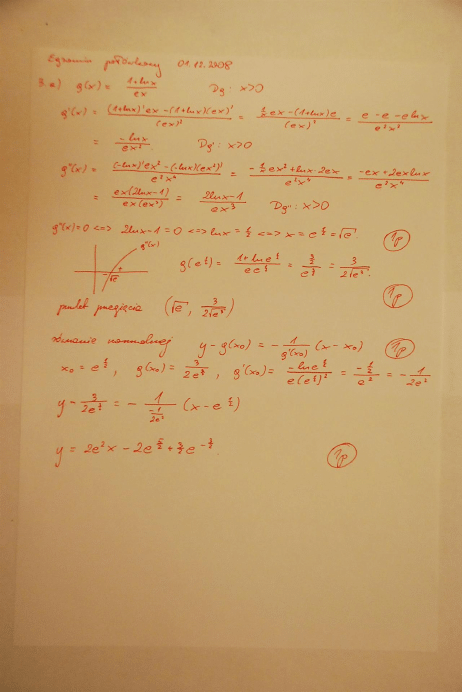 Egzamin połówkowy 01.12.2008
3. a) g(x) = (1+lnx)/(ex) Dg: x>0
g'(x) = ((1+lnx)'ex − (1+lnx)(ex)')/(ex)² = (1/x ex − (1+lnx)e)/(ex)² = (e − e − e lnx)/(e²x²)
= (−lnx)/(ex²). Dg': x>0
g''(x) = ((−lnx)'ex² − (−lnx)(ex²)')/(e²x⁴) = (−1/x ex² + lnx·2ex)/(e²x⁴) = (−ex + 2exlnx)/(e²x⁴)
= (ex(2lnx−1))/(ex(ex³)) = (2lnx−1)/(ex³) Dg'': x>0
g''(x)=0 <=> 2lnx−1 = 0 <=> lnx = 1/2 <=> x = e^(1/2) = √e. 1p
g''(x)
− √e +
g(e^(1/2)) = (1+lne^(1/2))/(e e^(1/2)) = (3/2)/(e^(3/2)) = 3/(2√e³).
1p
punkt przegięcia (√e, 3/(2√e³))
równanie normalnej y − g(x₀) = −1/(g'(x₀)) (x − x₀) 1p
x₀ = e^(1/2), g(x₀) = 3/(2e^(3/2)), g'(x₀) = (−lne^(1/2))/(e(e^(1/2))²) = (−1/2)/e² = −1/(2e²)
y − 3/(2e^(3/2)) = − 1/(−1/(2e²)) (x − e^(1/2))
y = 2e²x − 2e^(5/2) + 3/2 e^(−3/2). 1p